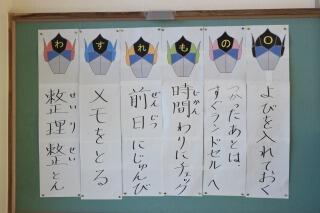 わすれもの0
よびを入れておく
つかったあとは、
すぐランドセルへ
じかん
時間わりにチェック
ぜんじつ
前日にじゅんび
メモをとる
せいりせい
整理整とん